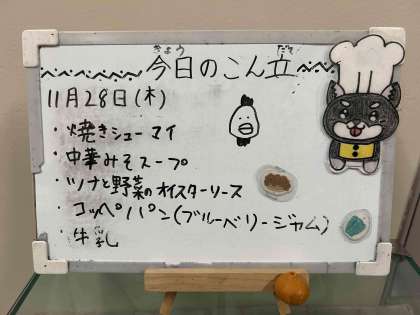 今日のこん立
11月28日(木)
・焼きシューマイ
・中華みそスープ
・ツナと野菜のオイスターソース
・コッペパン(ブルーベリージャム)
・牛乳